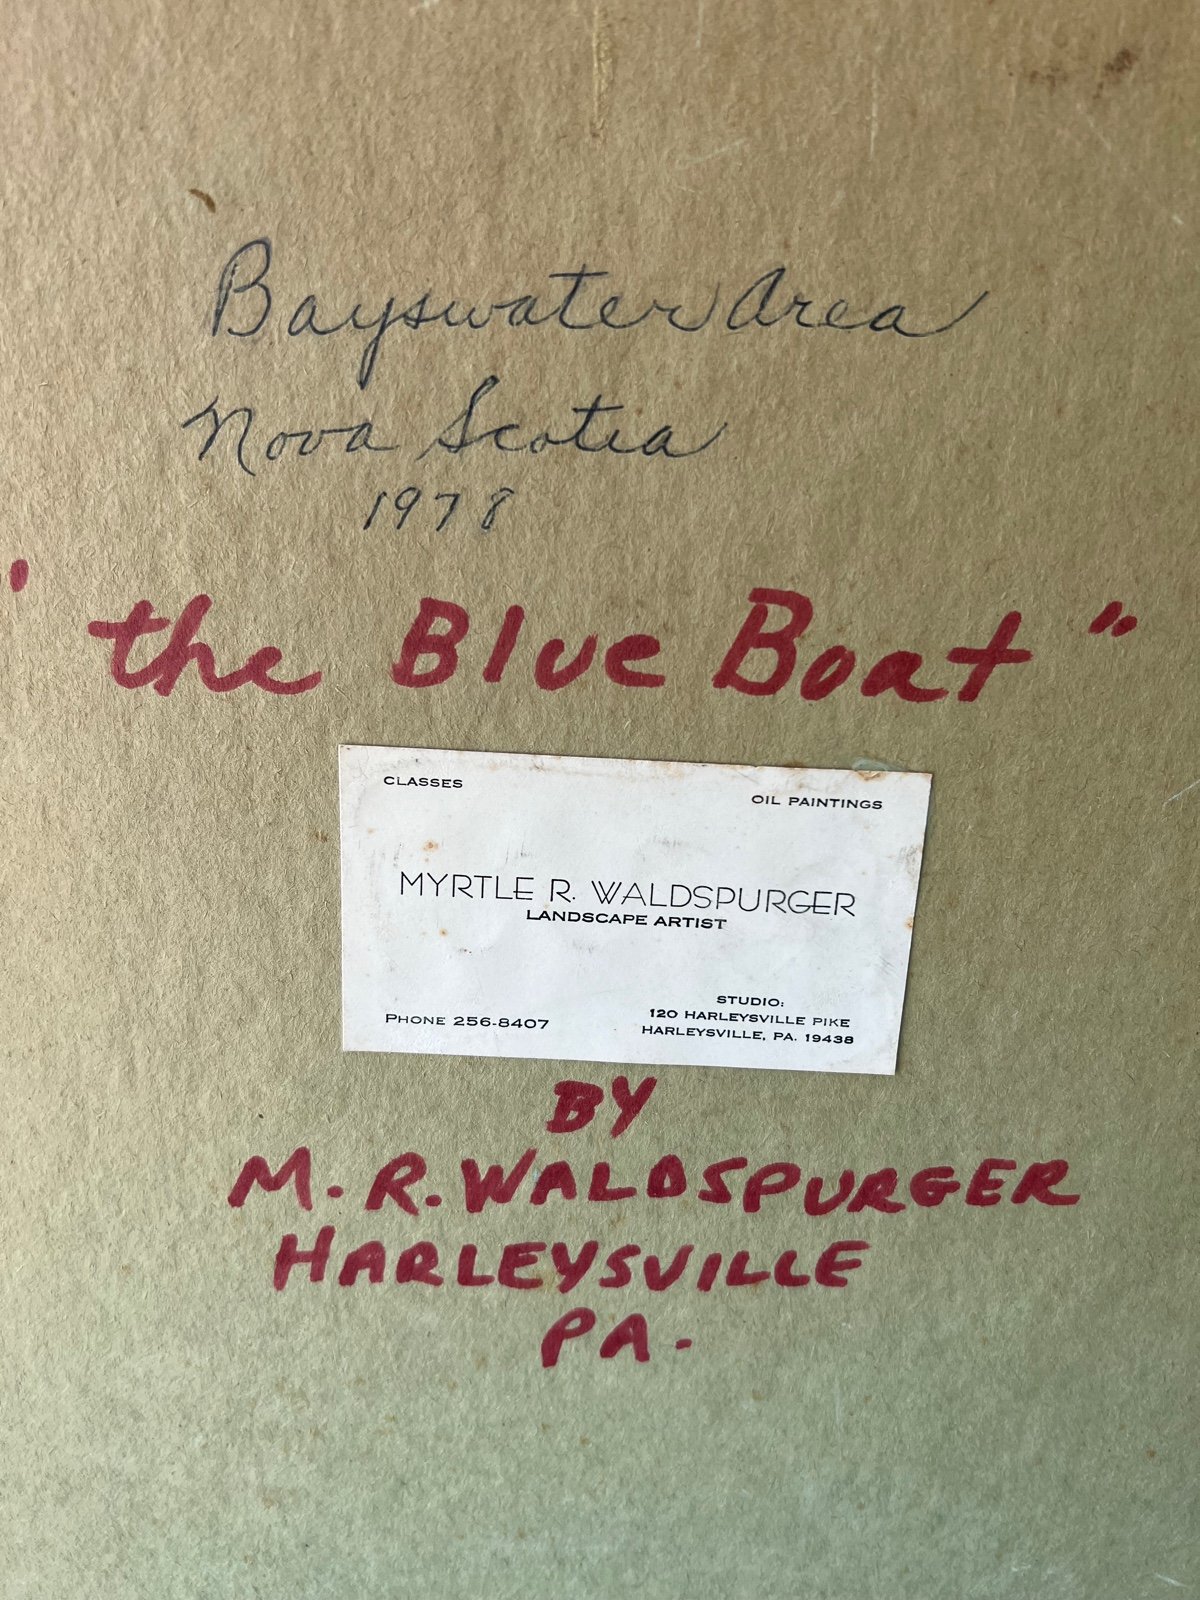 Bayswater Area
Nova Scotia
1978
"the Blue Boat"
CLASSES
OIL PAINTINGS
MYRTLE R. WALDSPURGER
LANDSCAPE ARTIST
PHONE 256-8407
STUDIO:
120 HARLEYSVILLE PIKE
HARLEYSVILLE, PA. 19438
BY
M. R. WALDSPURGER
HARLEYSVILLE
PA.